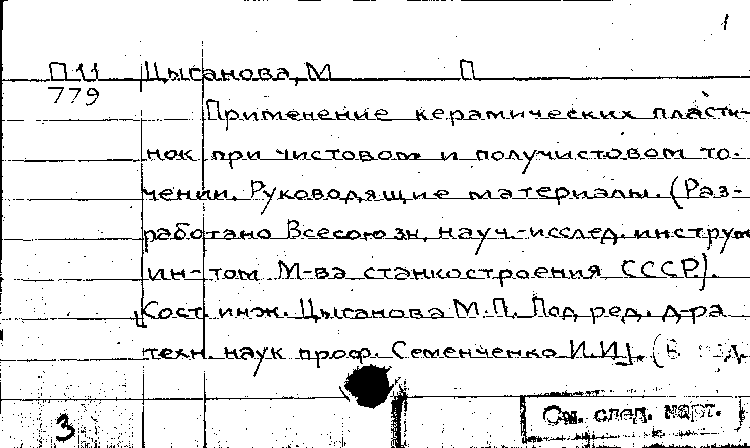 1
П 11 Цысанова, М П
779
Применение керамических пласти-
нок при чистовом и получистовом то-
чении. Руководящие материалы. (Раз-
работано Всесоюзн. науч.-исслед. инструм
ин-том М-ва станкостроения СССР).
Сост. инж. Цысанова М.П. Под ред. д-ра
техн. наук проф. Семенченко И.И. (В
3
См. след. карт.